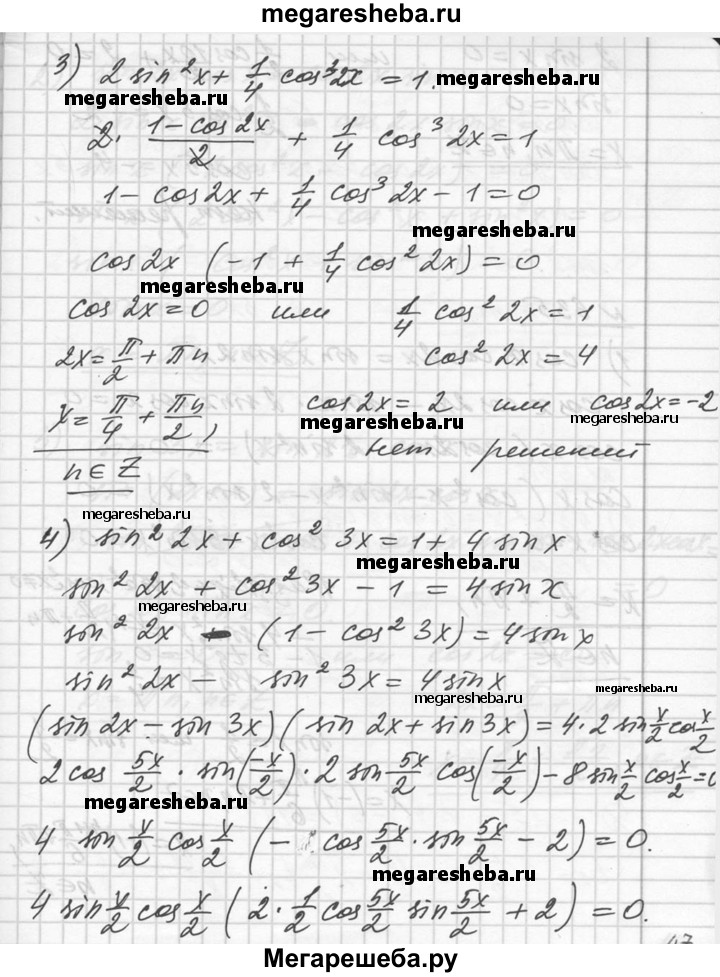 megaresheba.ru
3) 2 sin²x + 1/4 cos³2x = 1. megaresheba.ru
megaresheba.ru
2 · (1 - cos 2x)/2 + 1/4 cos³ 2x = 1
1 - cos 2x + 1/4 cos³ 2x - 1 = 0
megaresheba.ru
cos 2x (-1 + 1/4 cos² 2x) = 0
megaresheba.ru
cos 2x = 0 или 1/4 cos² 2x = 1
megaresheba.ru
2x = π/2 + πn cos² 2x = 4
x = π/4 + πn/2, cos 2x = 2 или cos 2x = -2
megaresheba.ru
n ∈ Z нет решений
megaresheba.ru megaresheba.ru
4) sin² 2x + cos² 3x = 1 + 4 sin x
megaresheba.ru
sin² 2x + cos² 3x - 1 = 4 sin x
megaresheba.ru
sin² 2x - (1 - cos² 3x) = 4 sin x
sin² 2x - sin² 3x = 4 sin x
megaresheba.ru megaresheba.ru
(sin 2x - sin 3x)(sin 2x + sin 3x) = 4 · 2 sin x/2 cos x/2
2 cos 5x/2 · sin(-x/2) · 2 sin 5x/2 cos(-x/2) - 8 sin x/2 cos x/2 = 0
megaresheba.ru
4 sin x/2 cos x/2 (- cos 5x/2 · sin 5x/2 - 2) = 0.
megaresheba.ru
4 sin x/2 cos x/2 (2 · 1/2 cos 5x/2 sin 5x/2 + 2) = 0.
Мегарешеба.ру